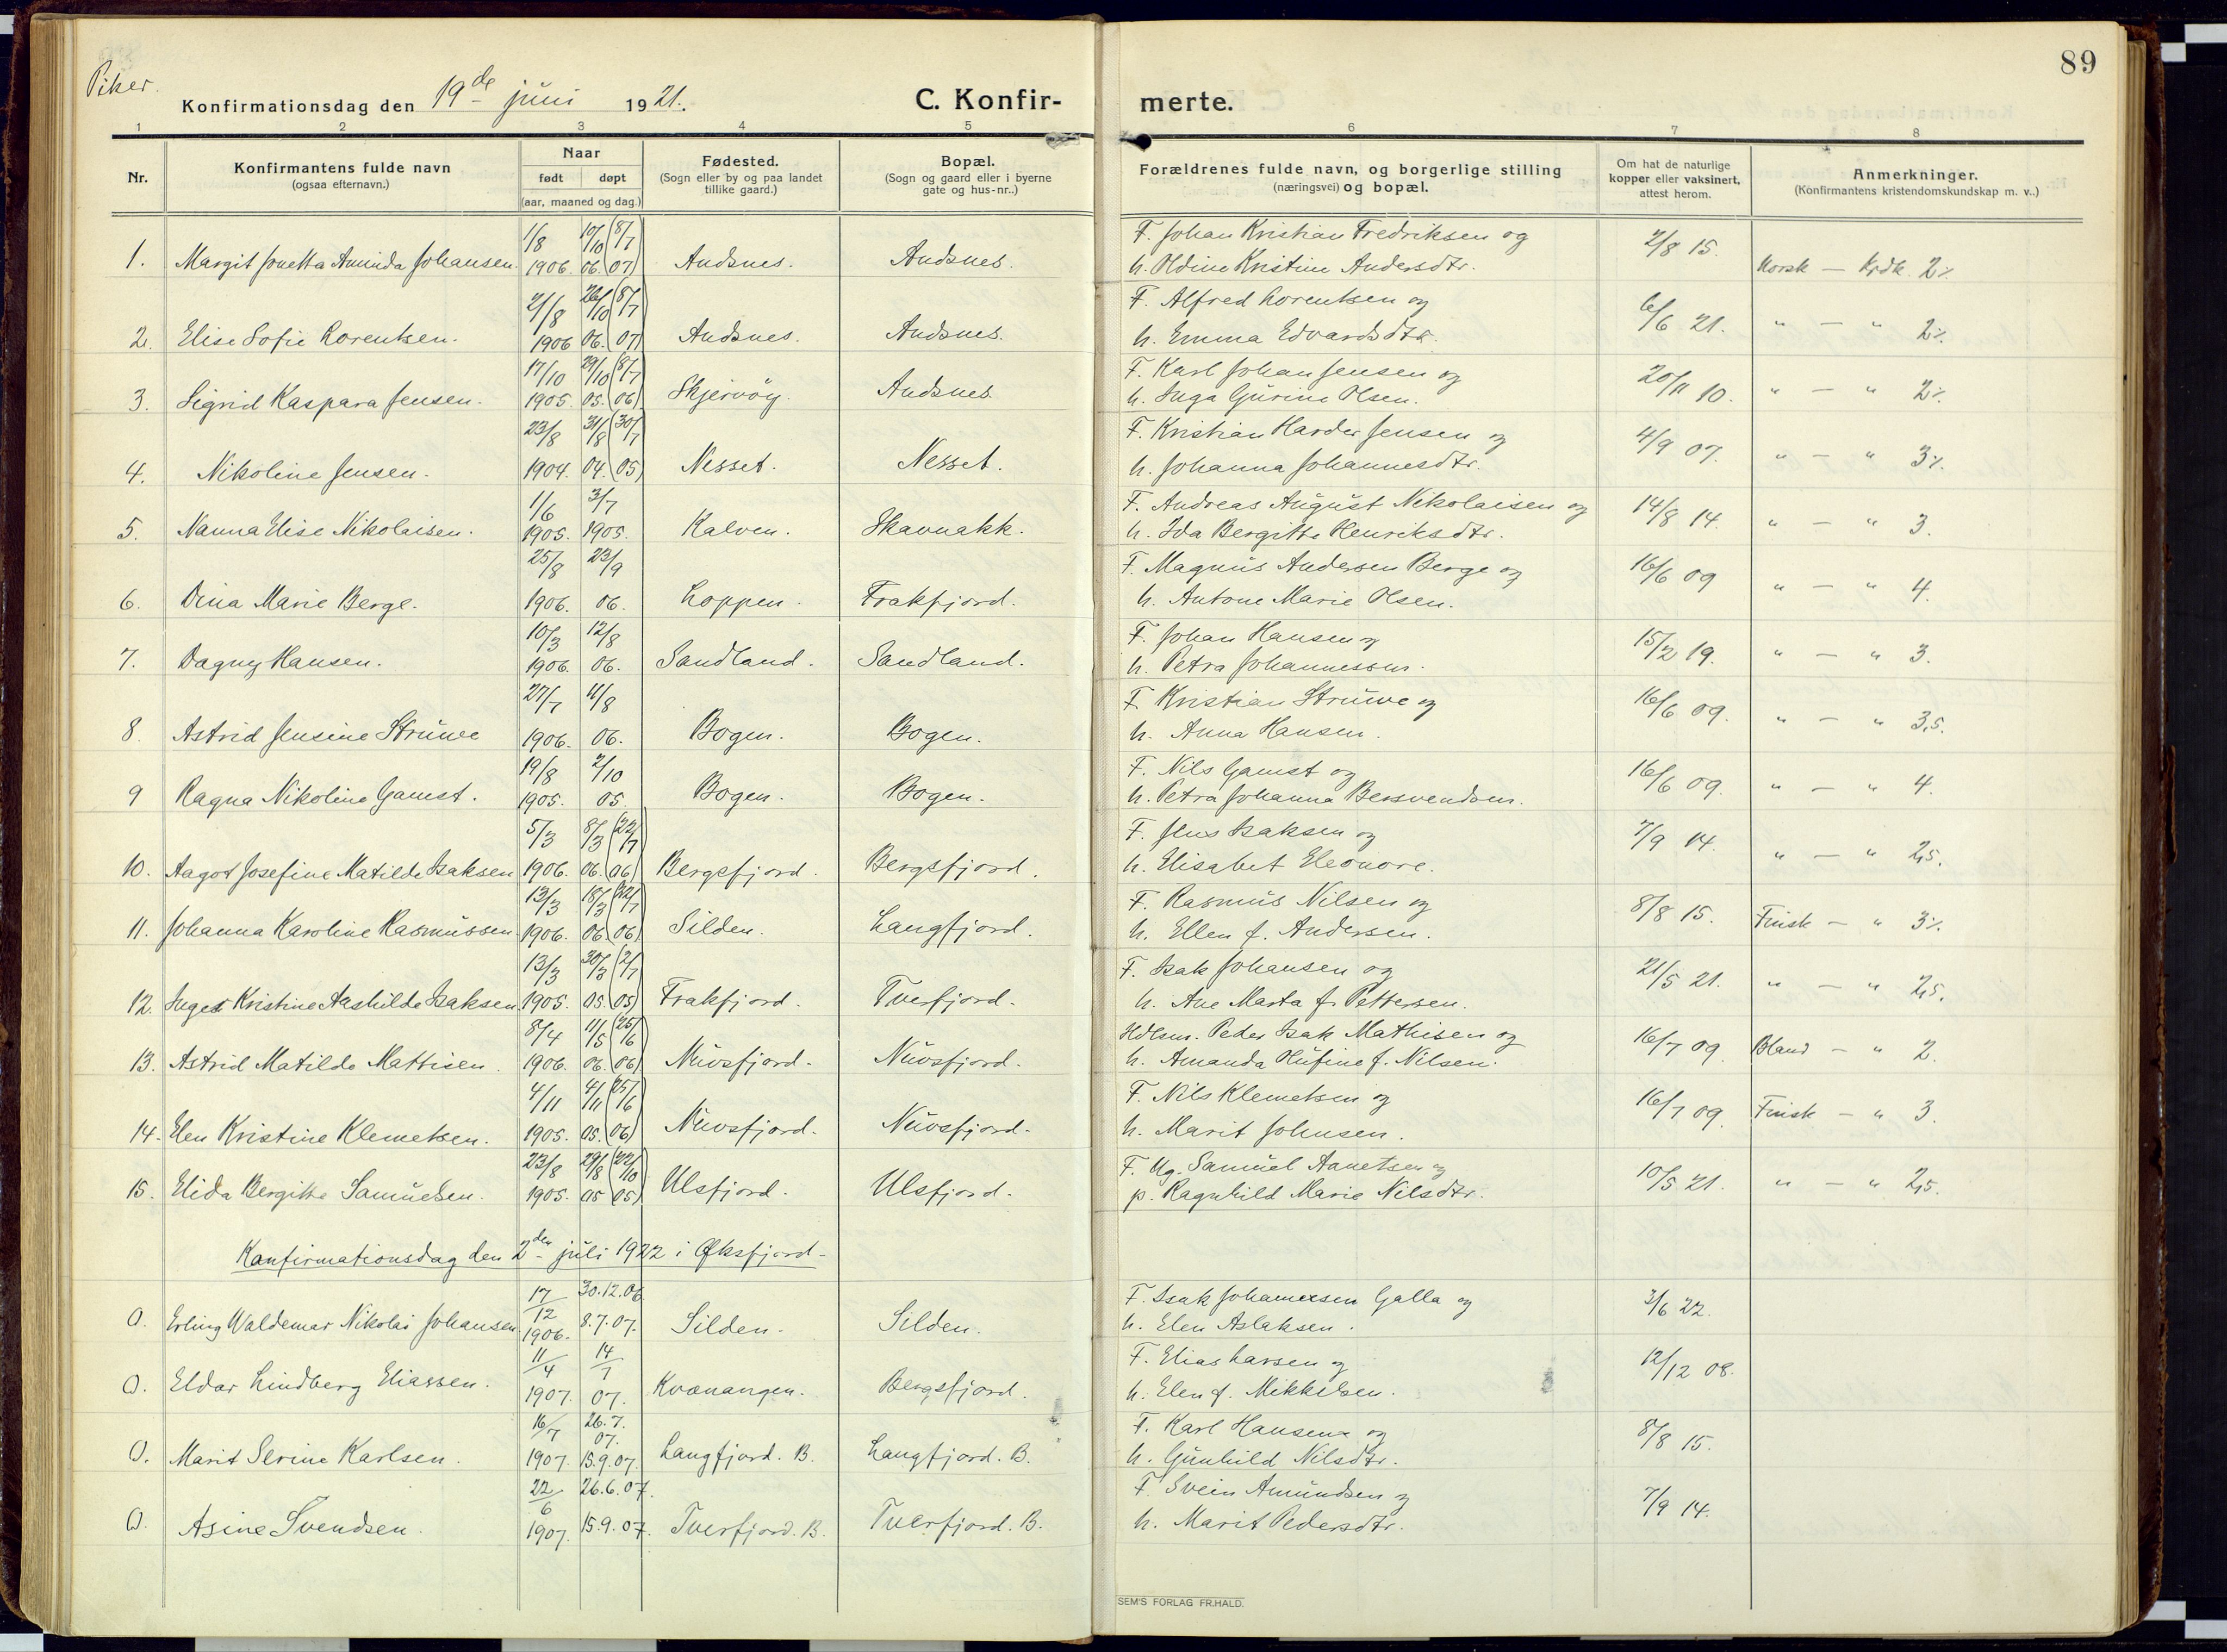 89
Piker.
Konfirmationsdag den 19de juni 1921.
C. Konfirmerte.
1 2 3 4 5 6 7 8
Nr.
Konfirmantens fulde navn
(ogsaa efternavn.)
Naar
født døpt
(aar, maaned og dag.)
Fødested.
(Sogn eller by og paa landet
tillike gaard.)
Bopæl.
(Sogn og gaard eller i byerne
gate og hus-nr..)
Forældrenes fulde navn, og borgerlige stilling
(næringsvei) og bopæl.
Om hat de naturlige
kopper eller vaksinert,
attest herom.
Anmerkninger.
(Konfirmantens kristendomskundskap m. v..)
1/8 10/10 (8/7 F. Johan Kristian Fredriksen og 2/8 15.
1. Margit Jonetta Aminda Johansen. 1906. 06. 07) Andsnes. Andsnes. h. Oldine Kristine Andersdtr. Norsk — Krdk. 2%
2/8 26/10 (8/7 F. Alfred Lorentsen og 6/6 21.
2. Elise Sofie Lorentsen. 1906 06. 07) Andsnes. Andsnes. h. Emma Edvardsdtr. " — " 2%
17/10 29/10 (8/7 F. Karl Johan Jensen og 20/11 10.
3. Sigrid Kaspara Jensen. 1905. 05. 06) Skjervöy. Andsnes. h. Inga Gurine Olsen. " — " 2%
23/8 31/8 (30/7 F. Kristian Harder Jensen og 4/9 07.
4. Nikoline Jensen. 1904. 04. 05) Nesset. Nesset. h. Johanna Johannesdtr. " — " 3%
1/6 3/7 F. Andreas August Nikolaisen og 14/8 14.
5. Nanna Elise Nikolaisen. 1905. 1905. Kalven. Skavnakk. h. Ida Bergitte Henriksdtr. " — " 3.
25/8 23/9 F. Magnus Andersen Berge og 16/6 09
6. Dina Marie Berge. 1906. 06. Loppen. Frakfjord. h. Antone Marie Olsen. " — " 4.
10/3 12/8 F. Johan Hansen og 15/2 19.
7. Dagny Hansen. 1906. 06. Sandland. Sandland. h. Petra Johannessen. " — " 3.
27/7 11/8 F. Kristian Struwe og 16/6 09.
8. Astrid Jensine Struwe 1906. 06. Bogen. Bogen. h. Anna Hansen. " — " 3,5.
19/8 2/10 F. Nils Gamst og 16/6 09.
9 Ragna Nikoline Gamst. 1905. 05. Bogen. Bogen. h. Petra Johanna Bersvendsen. " — " 4.
5/3 8/3 (22/7 F. Jens Isaksen og 7/9 14.
10. Aagot Josefine Matilde Isaksen 1906. 06. 06) Bergsfjord. Bergsfjord. h. Elisabet Eleonore. " — " 2,5.
13/3 18/3 (22/7 F. Rasmus Nilsen og 8/8 15.
11. Johanna Karoline Rasmussen. 1906. 06. 06) Silden. Langfjord. h. Ellen f. Andersen. Finsk — " 3%
13/3 30/3 (2/7 F. Isak Johansen og 21/5 21.
12. Inger Kristine Aashilde Isaksen 1905. 05. 05) Frakfjord. Tverfjord. h. Ane Marta f. Pettersen. " — " 2,5.
8/4 11/5 (25/6 Hdlsm. Peder Isak Mathisen og 16/7 09.
13. Astrid Matilde Mattisen. 1906. 06. 06) Nuvsfjord. Nuvsfjord. h. Amanda Olufine f. Nilsen. Bland — " 2.
4/11 4/11 (25/6 F. Nils Klemetsen og 16/7 09.
14. Elen Kristine Klemetsen. 1905. 05. 06) Nuvsfjord. Nuvsfjord. h. Marit Johnsen. Finsk — " 3.
23/8 29/8 (22/10 F. Ug. Samuel Aanetsen og 10/5 21.
15. Elida Bergitte Samuelsen. 1905. 05 05) Ulsfjord. Ulsfjord. p. Ragnhild Marie Nilsdtr. " — " 2,5.
Konfirmationsdag den 2den juli 1922 i Öksfjord.
17/12 30.12.06 F. Isak Johannesen Galla og 3/6 22.
O. Erling Waldemar Nikolai Johansen 1906. 8.7.07. Silden. Silden. h. Elen Aslaksen.
11/4 14/7 F. Elias Larsen og 12/12 08.
O. Eldar Lindberg Eliassen. 1907. 07. Kvænangen. Bergsfjord. h. Elen f. Mikkelsen.
16/7 26.7.07. F. Karl Hansen og 8/8 15.
O. Marit Serine Karlsen. 1907. 15.9.07. Langfjord. B. Langfjord. B. h. Gunhild Nilsdtr.
22/6 26.6.07. F. Svein Amundsen og 7/9 14.
O. Asine Svendsen. 1907. 15.9.07. Tverfjord. B. Tverfjord. B. h. Marit Pedersdtr.
SEM'S FORLAG FR.HALD.